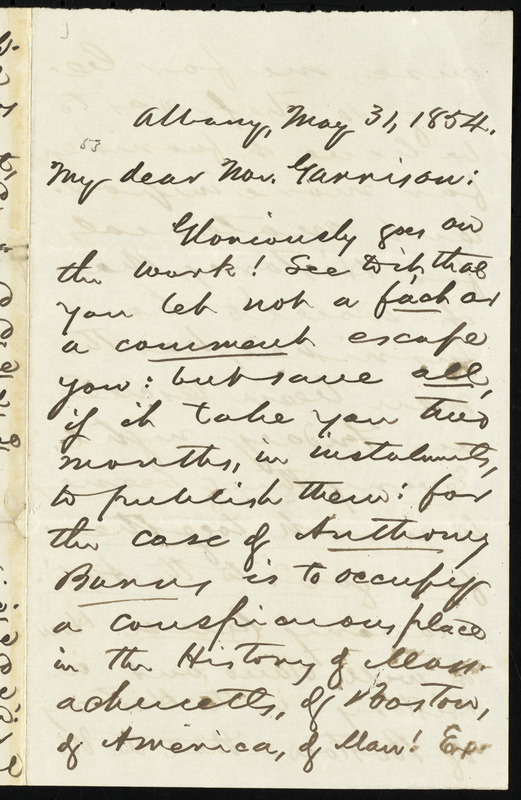 Albany, May 31, 1854.
53
My dear Mr. Garrison:
Gloriously goes on
the work! See to it that
you let not a fact or
a comment escape
you: but save all,
if it take you two
months, in instalments,
to publish them: for
the case of Anthony
Burns is to occupy
a conspicuous place
in the History of Mass-
achusetts, of Boston,
of America, of Man! Ex-